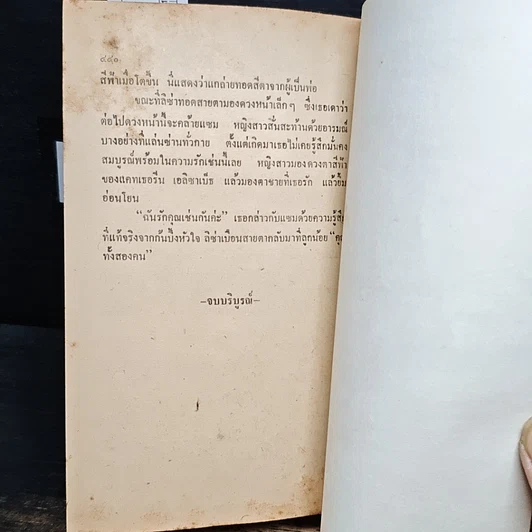 ๔๔๐
สีฟ้าเมื่อโตขึ้น นี่แสดงว่าแกถ่ายทอดสีตาจากผู้เป็นพ่อ
ขณะที่ลิซ่าทอดสายตามองดวงหน้าเล็กๆ ซึ่งเธอเดาว่า
ต่อไปดวงหน้านี้จะคล้ายแซม หญิงสาวสั่นสะท้านด้วยอารมณ์
บางอย่างที่แล่นซ่านทั่วกาย ตั้งแต่เกิดมาเธอไม่เคยรู้สึกมั่นคง
สมบูรณ์พร้อมในความรักเช่นนี้เลย หญิงสาวมองดวงตาสีฟ้า
ของแคทเธอรีน เอลิซาเบ็ธ แล้วมองตาชายที่เธอรัก แล้วยิ้ม
อ่อนโยน
“ฉันรักคุณเช่นกันค่ะ” เธอกล่าวกับแซมด้วยความรู้สึก
ที่แท้จริงจากก้นบึ้งหัวใจ ลิซ่าเบือนสายตากลับมาที่ลูกน้อย “คุณ
ทั้งสองคน”
–จบบริบูรณ์–